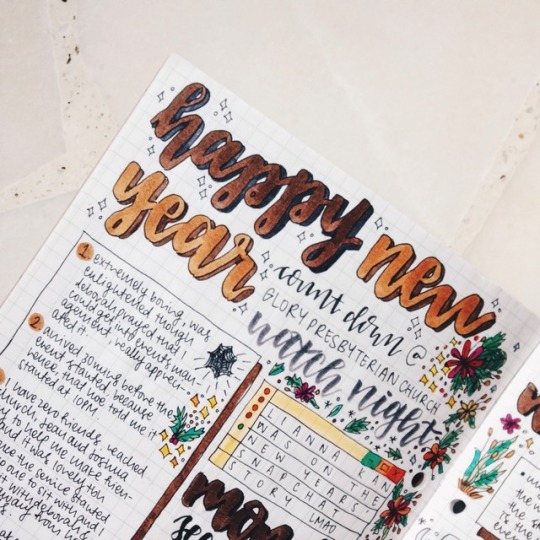 happy new
year
count down @
GLORY PRESBYTERIAN CHURCH
watch night
1. extremely boring, was
enlightened though
deborah prayed that I
could get into events man-
agement, really appreci-
ated it
2. arrived 50mins before the
event started because
hever, that hoe, told me it
started at 10PM
i have zero friends. reached
church, jean and joshua
to help me make frien-
and it was lovely tbh
once the service started
no one to sit with
sit with deborah and i
away from
LIANNA KAN
WAS ON THE
NEW YEARS'
SNAPCHAT
STORY LMAO